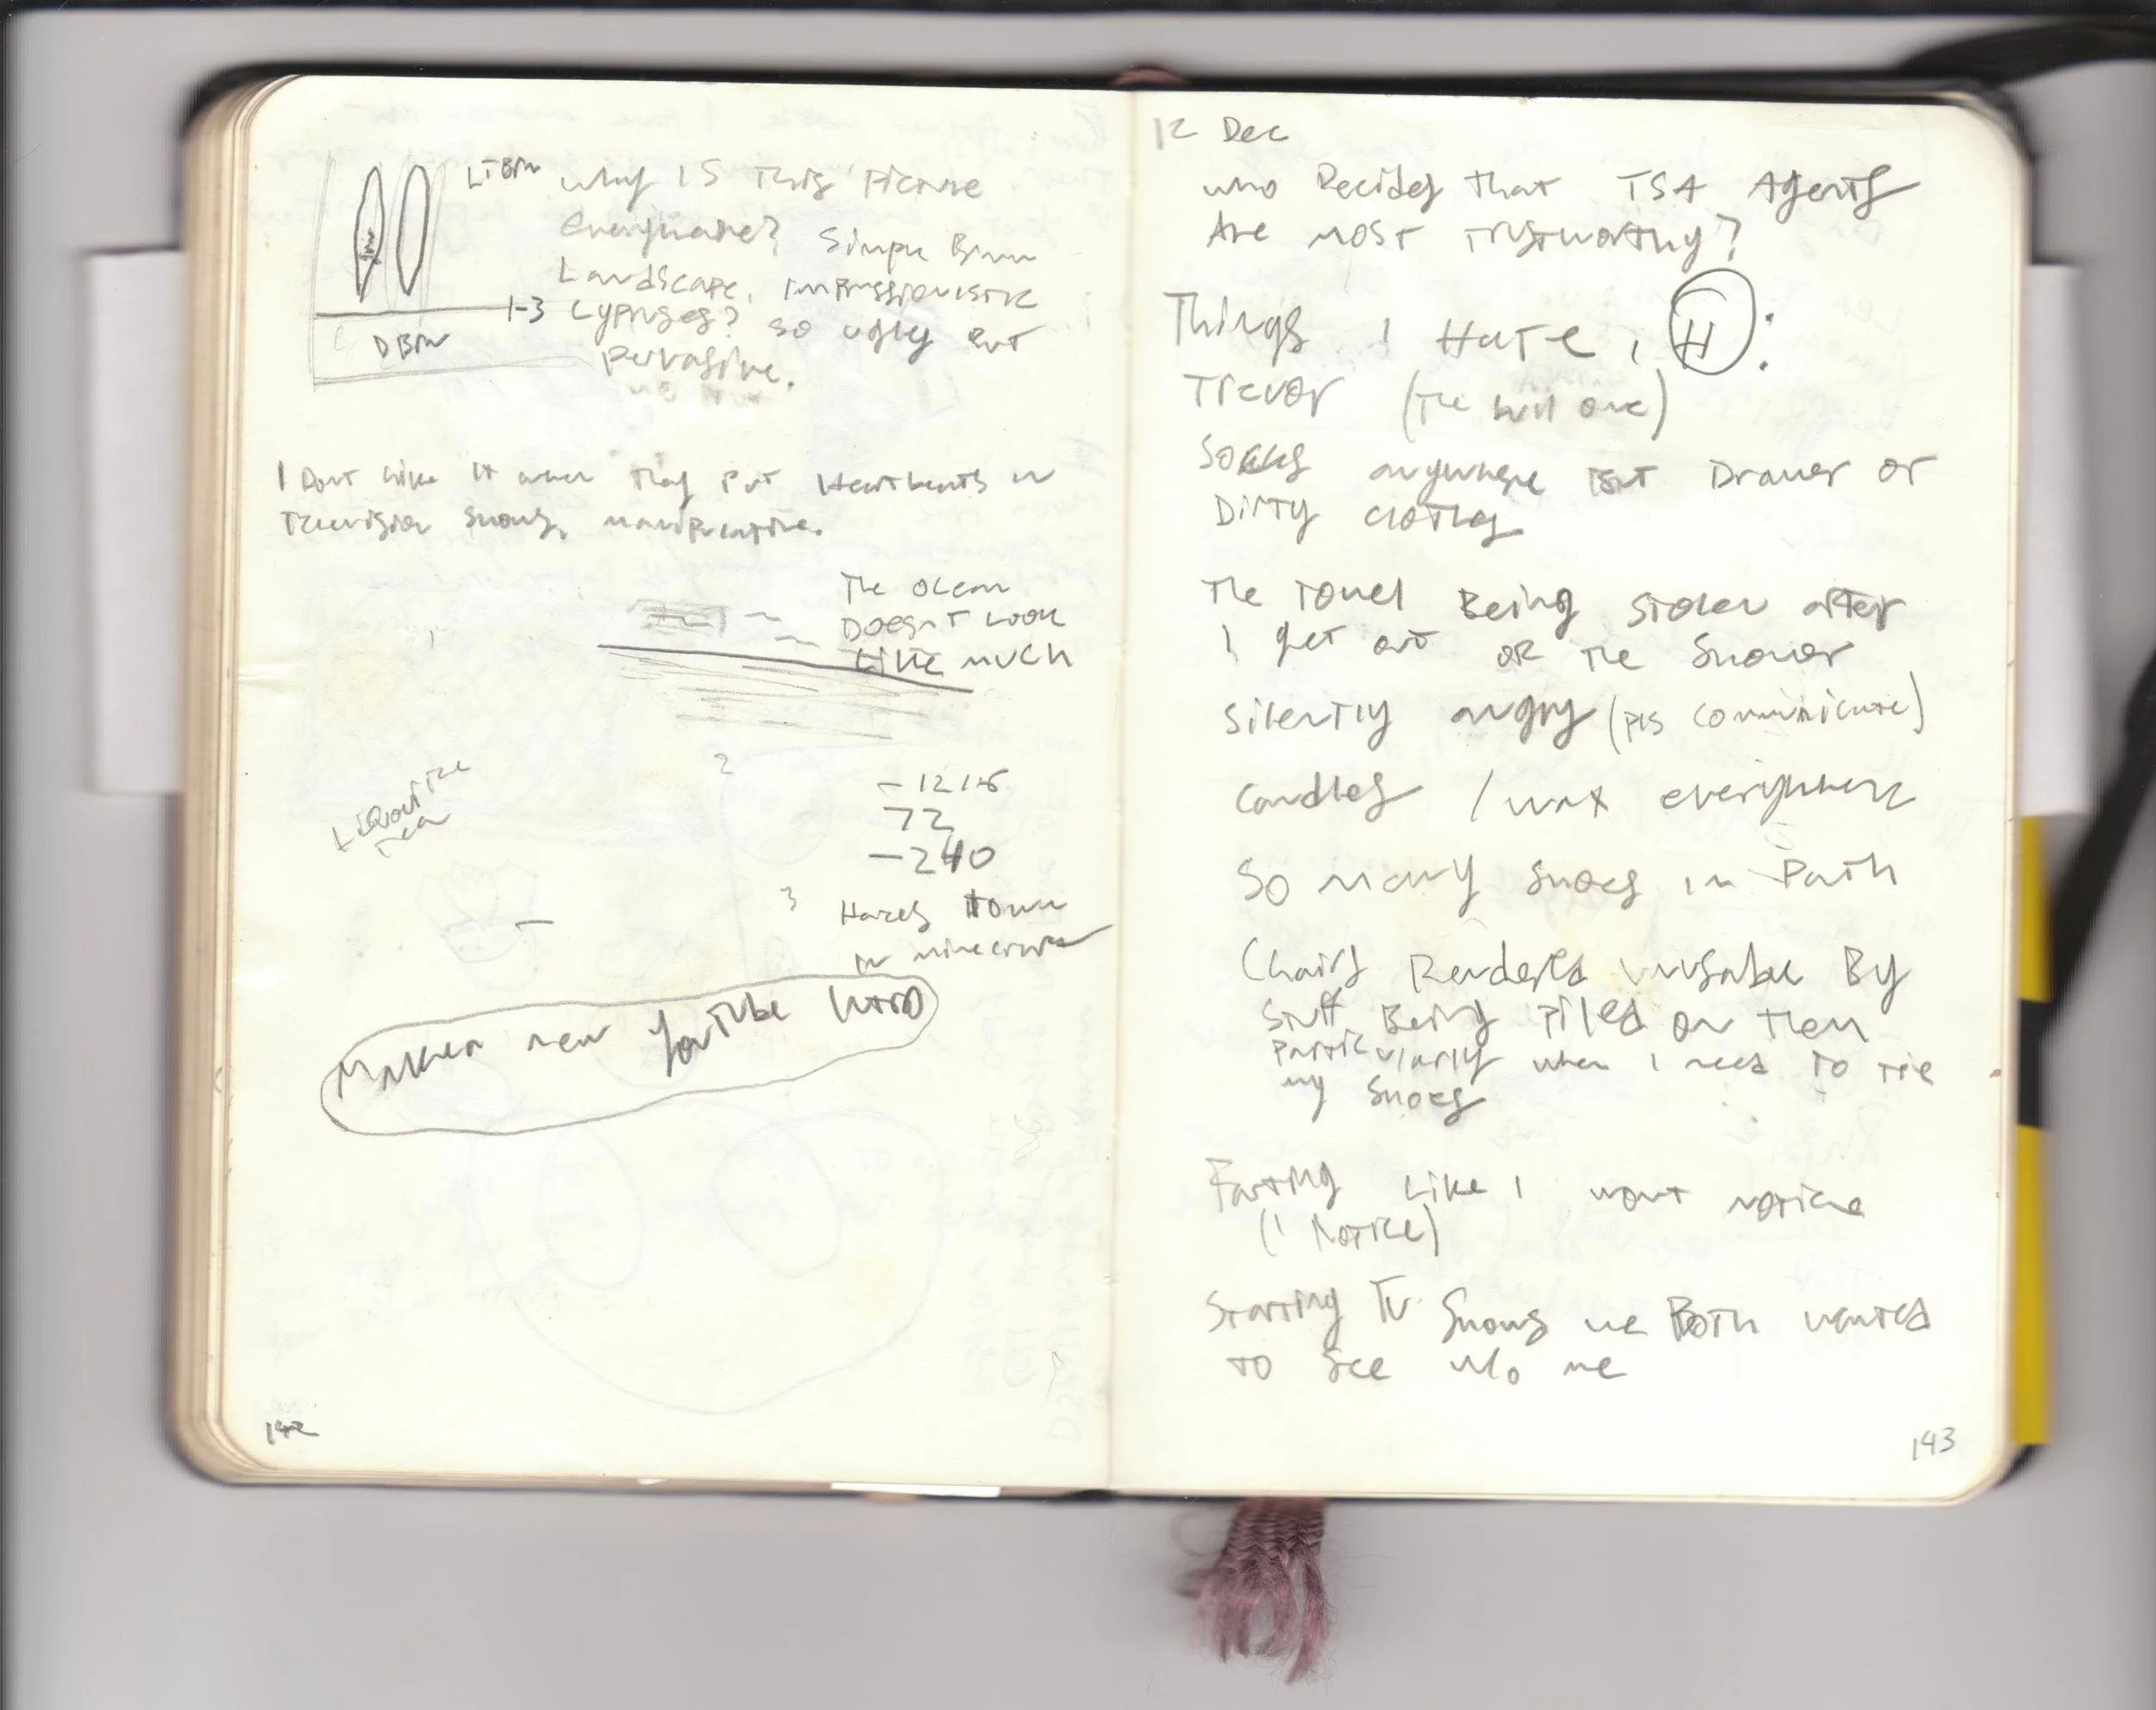 LTBRN Why is this picture
everywhere? Simple Brown
Landscape, impressionistic
1-3 cypruses? so ugly but
DBRN pervasive.
I Dont like it when they put Heartbeats in
Television shows, manipulative.
The ocean
Doesn't look
Like much
Liquorice
Tea
2
-1215
72
-240
3
town
in minecraft
new Youtube intro
142
12 Dec
who Decides that TSA Agents
Are most trustworthy?
Things I Hate, H:
Trevor (The evil one)
Socks anywhere But Drawer or
Dirty clothes
The towel Being stolen after
I get out of the Shower
Silently angry (pls communicate)
Candles / wax everywhere
So many shoes in Path
Chairs Rendered unusable By
Stuff Being Piled on them
particularly when I need to tie
my shoes
Farting Like I wont notice
(I Notice)
Starting TV Shows we Both wanted
to See w/o me
143